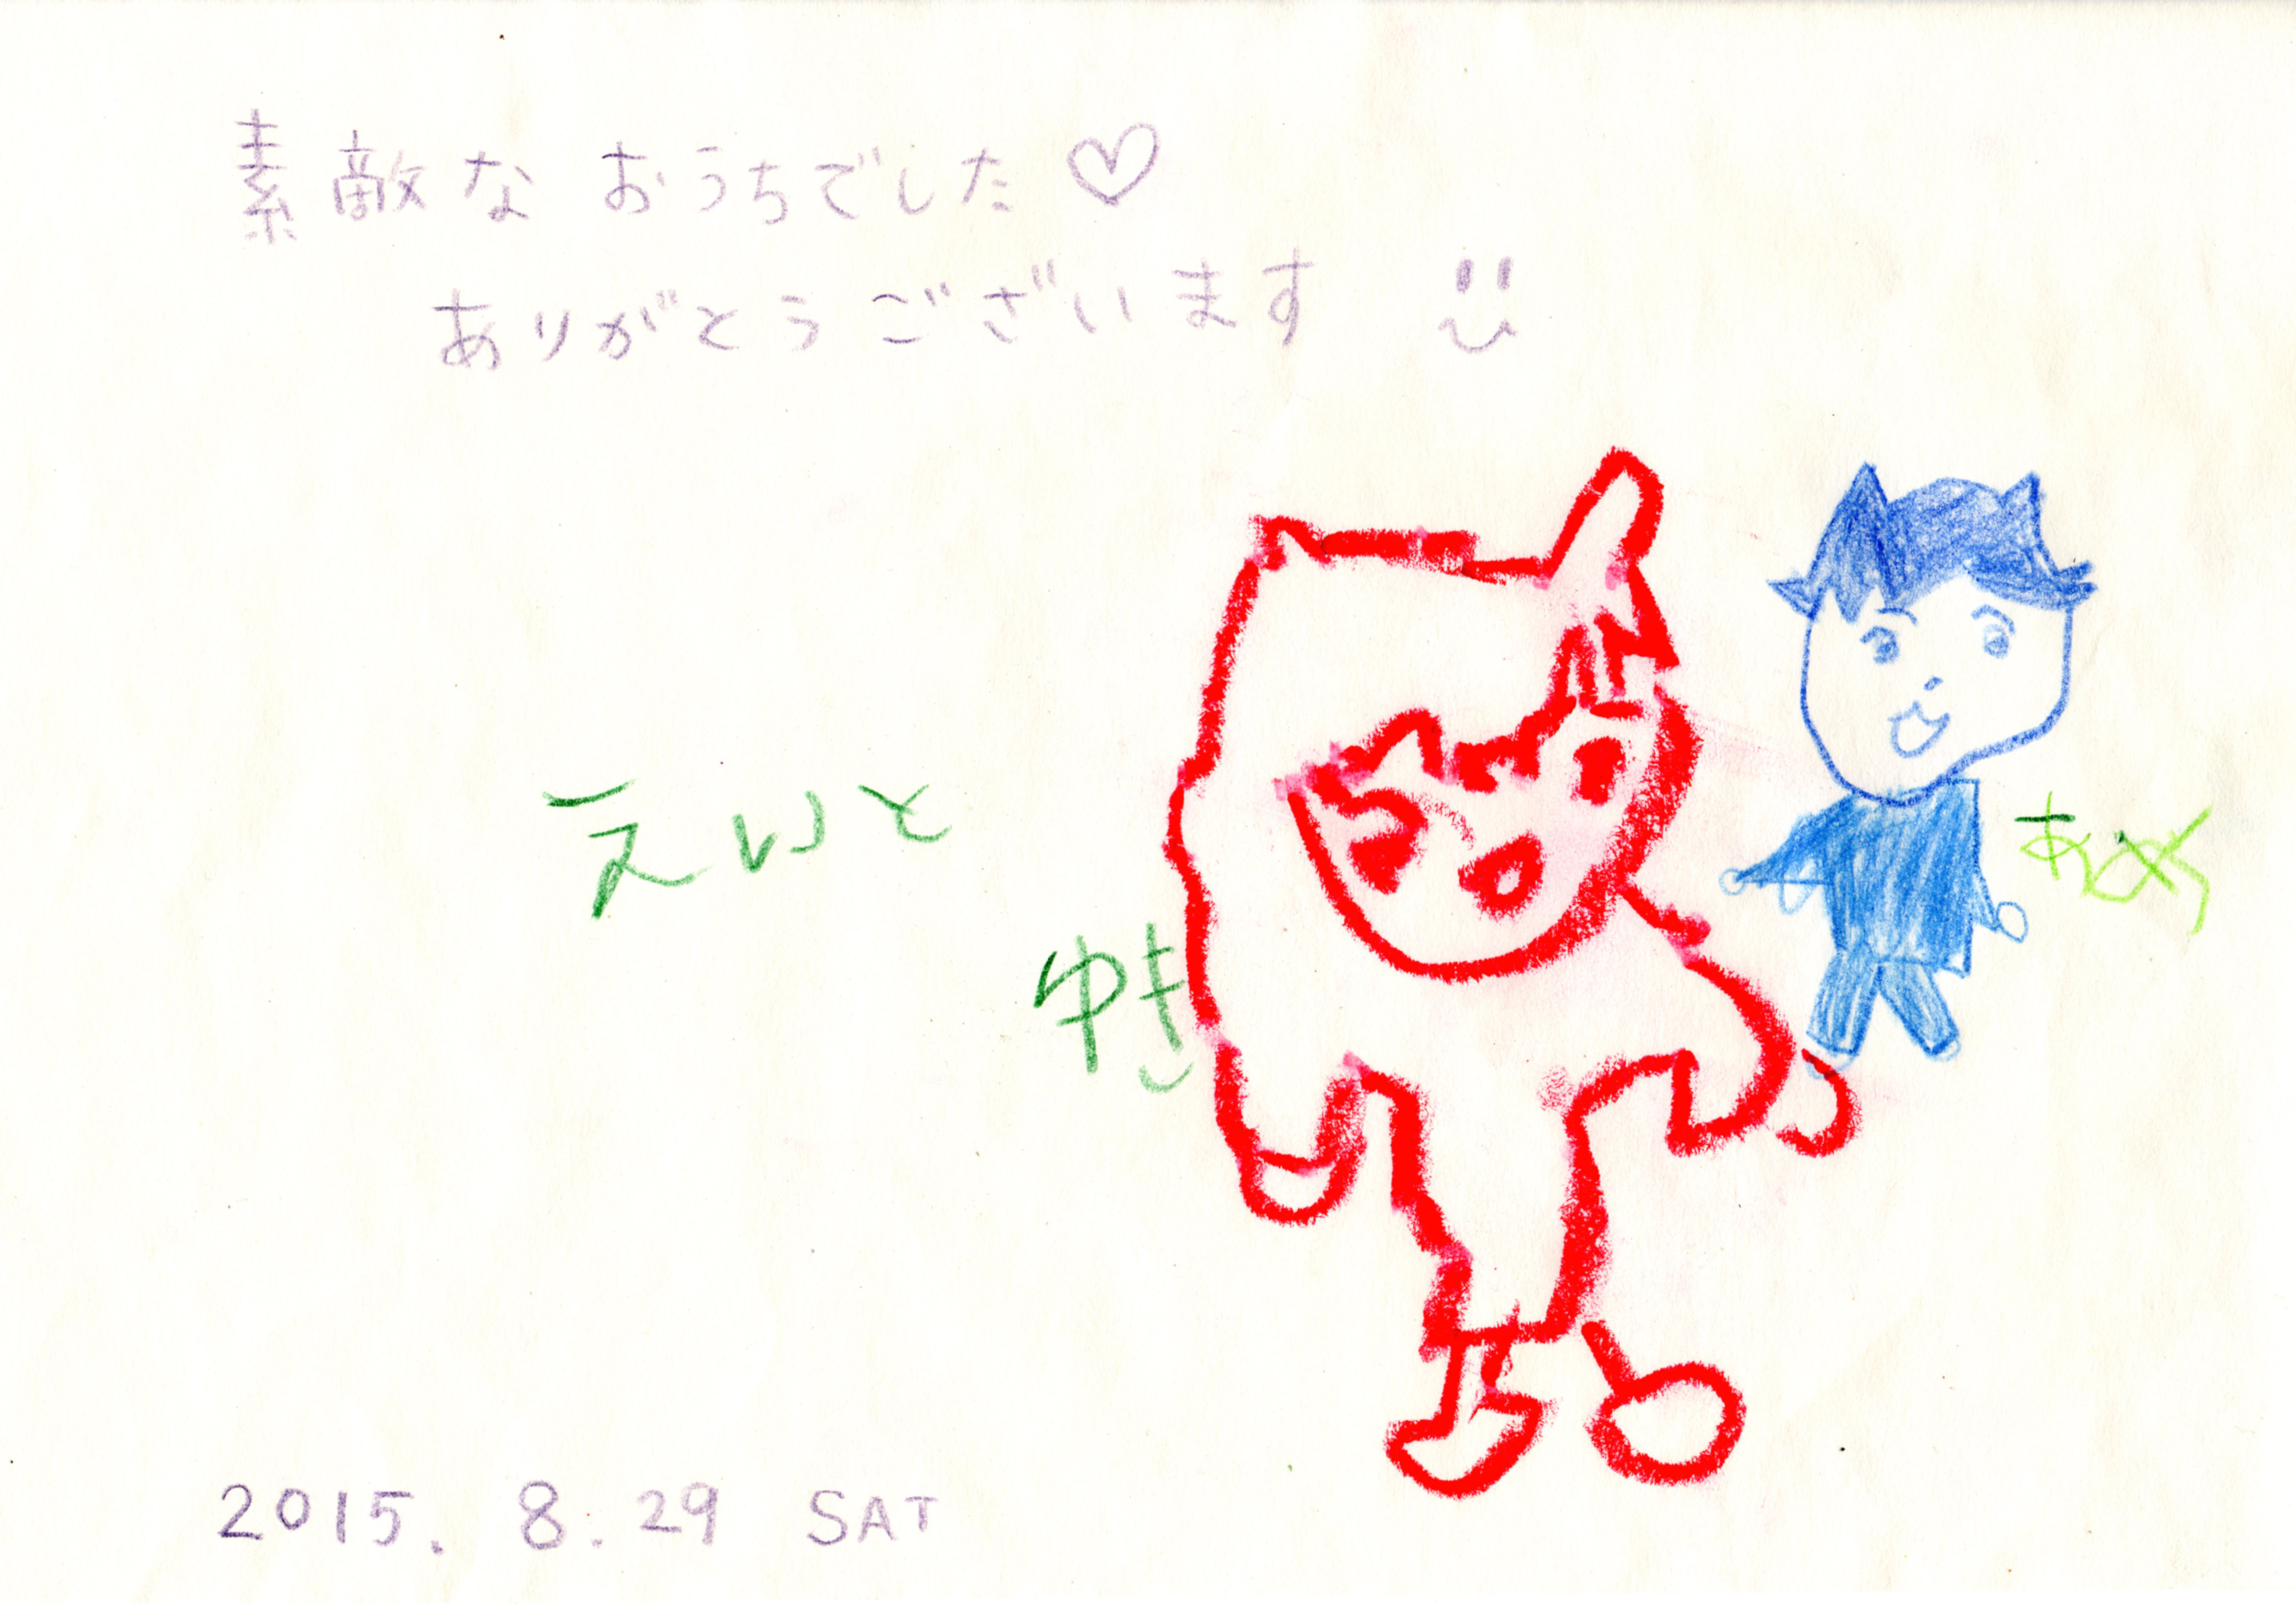 素敵な おうちでした♡
ありがとうございます
えいと
ゆき
2015. 8. 29 SAT